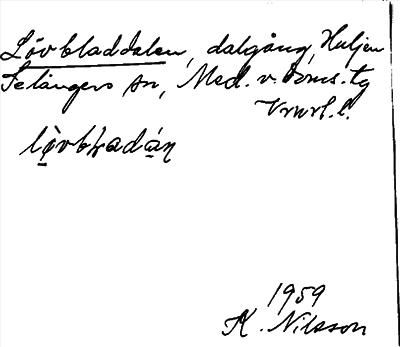 Lövbladdalen, dalgång, Huljen
Selångers sn, Med. v. doms. tg
lövbładán
1959
K. Nilsson